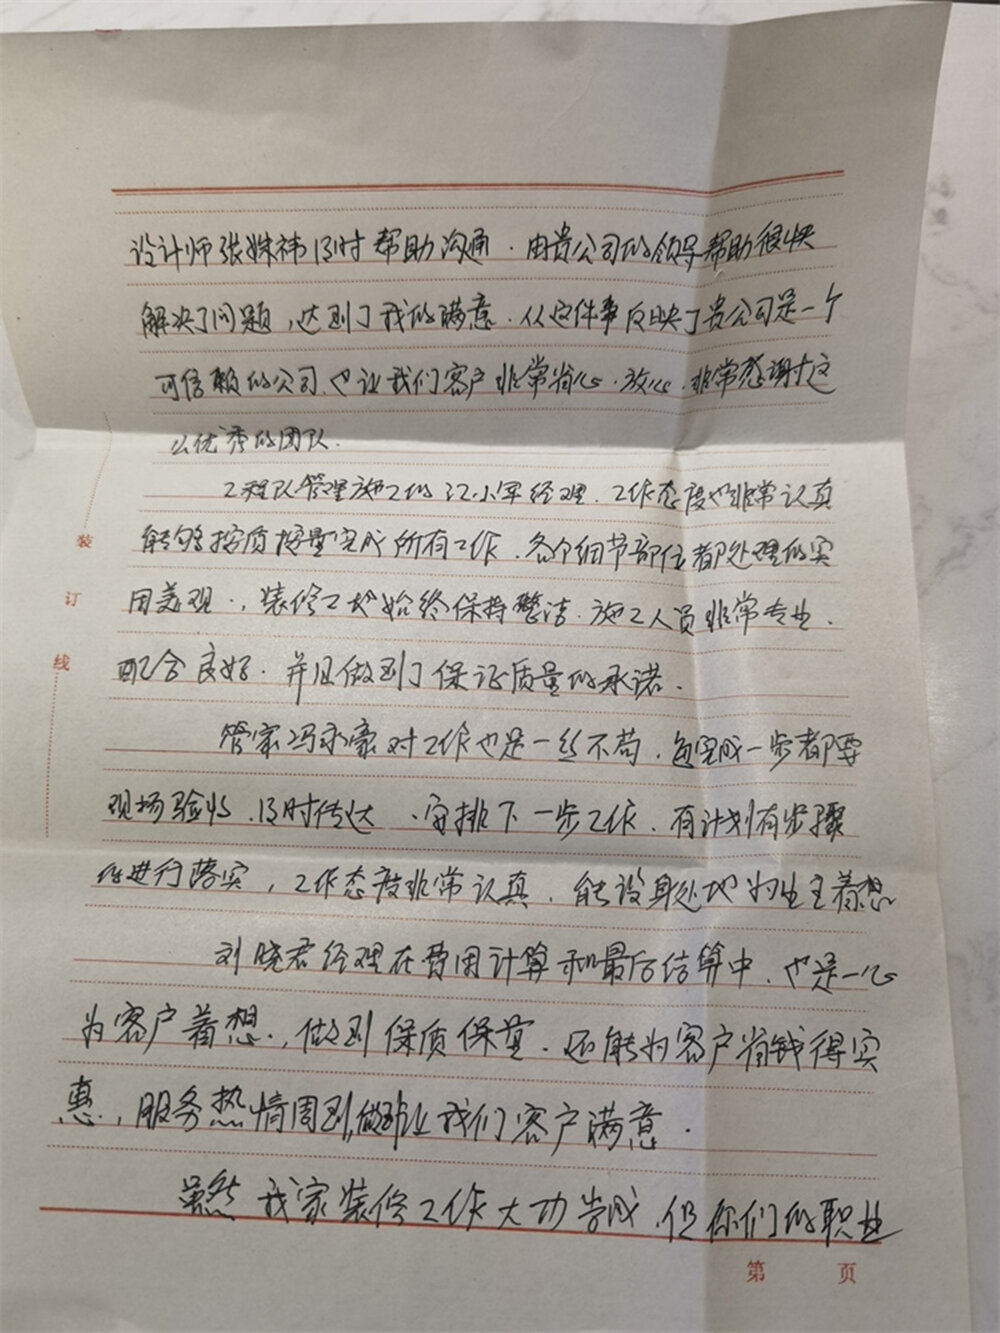 设计师张姝祎及时帮助沟通.由贵公司的领导帮助很快
解决了问题,达到了我的满意.从这件事反映了贵公司是一个
可信赖的公司.也让我们客户非常省心.放心.非常感谢这
么优秀的团队.
工程队管理施工的江小军经理.工作态度也非常认真
能够按质按量完成所有工作.各个细节部位都处理的实
用美观.,装修工地始终保持整洁.施工人员非常专业.
配合良好.并且做到了保证质量的承诺.
管家冯永豪对工作也是一丝不苟.每完成一步都要
现场验收.及时传达、安排下一步工作.有计划有步骤
的进行落实,工作态度非常认真.能设身处地为业主着想
刘晓君经理在费用计算和最后结算中.也是一心
为客户着想.,做到保质保量.还能为客户省钱得实
惠,服务热情周到,做到让我们客户满意.
虽然我家装修工作大功告成.但你们的职业
装
订
线
第 页